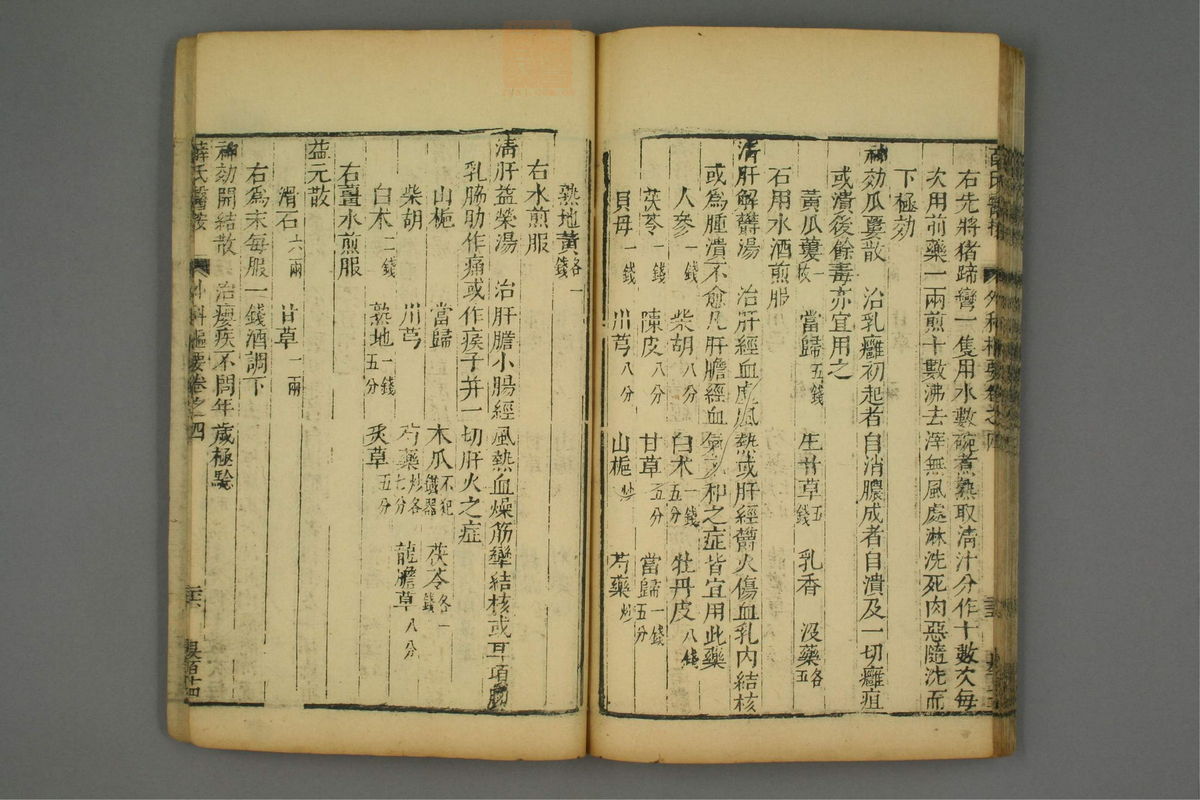 右先將猪蹄彎一隻用水數碗煮熟取淸汁分作十數次每
次用前藥一兩煎十數沸去滓無風處淋洗死肉惡隨洗而
下極効
神効瓜蔞散　治乳癰初起者自消膿成者自潰及一切癰疽
或潰後餘毒亦宜用之
黃瓜蔞一枚　當歸五錢　生甘草五錢　乳香　沒藥各五
石用水酒煎服
淸肝解鬱湯　治肝經血虛風熱或肝經鬱火傷血乳內結核
或爲腫潰不愈凡肝膽經血氣不和之症皆宜用此藥
人參一錢　柴胡八分　白术一錢五分　牡丹皮八錢
茯苓一錢　陳皮八分　甘草五分　當歸一錢五分
貝母一錢　川芎八分　山梔炒　芍藥炒
熟地黃各一錢
右水煎服
淸肝益榮湯　治肝膽小腸經風熱血燥筋攣結核或耳項胸
乳脇肋作痛或作瘊子并一切肝火之症
山梔　當歸　木瓜不犯鐵器　茯苓各一錢
柴胡　川芎　芍藥炒各七分　龍膽草八分
白木二錢　熟地一錢五分　炙草五分
右薑水煎服
益元散
滑石六兩　甘草一兩
右爲末每服一錢酒調下
神効開結散　治癭疾不問年歲極驗
薛氏醫按　外科樞要卷之四　三六